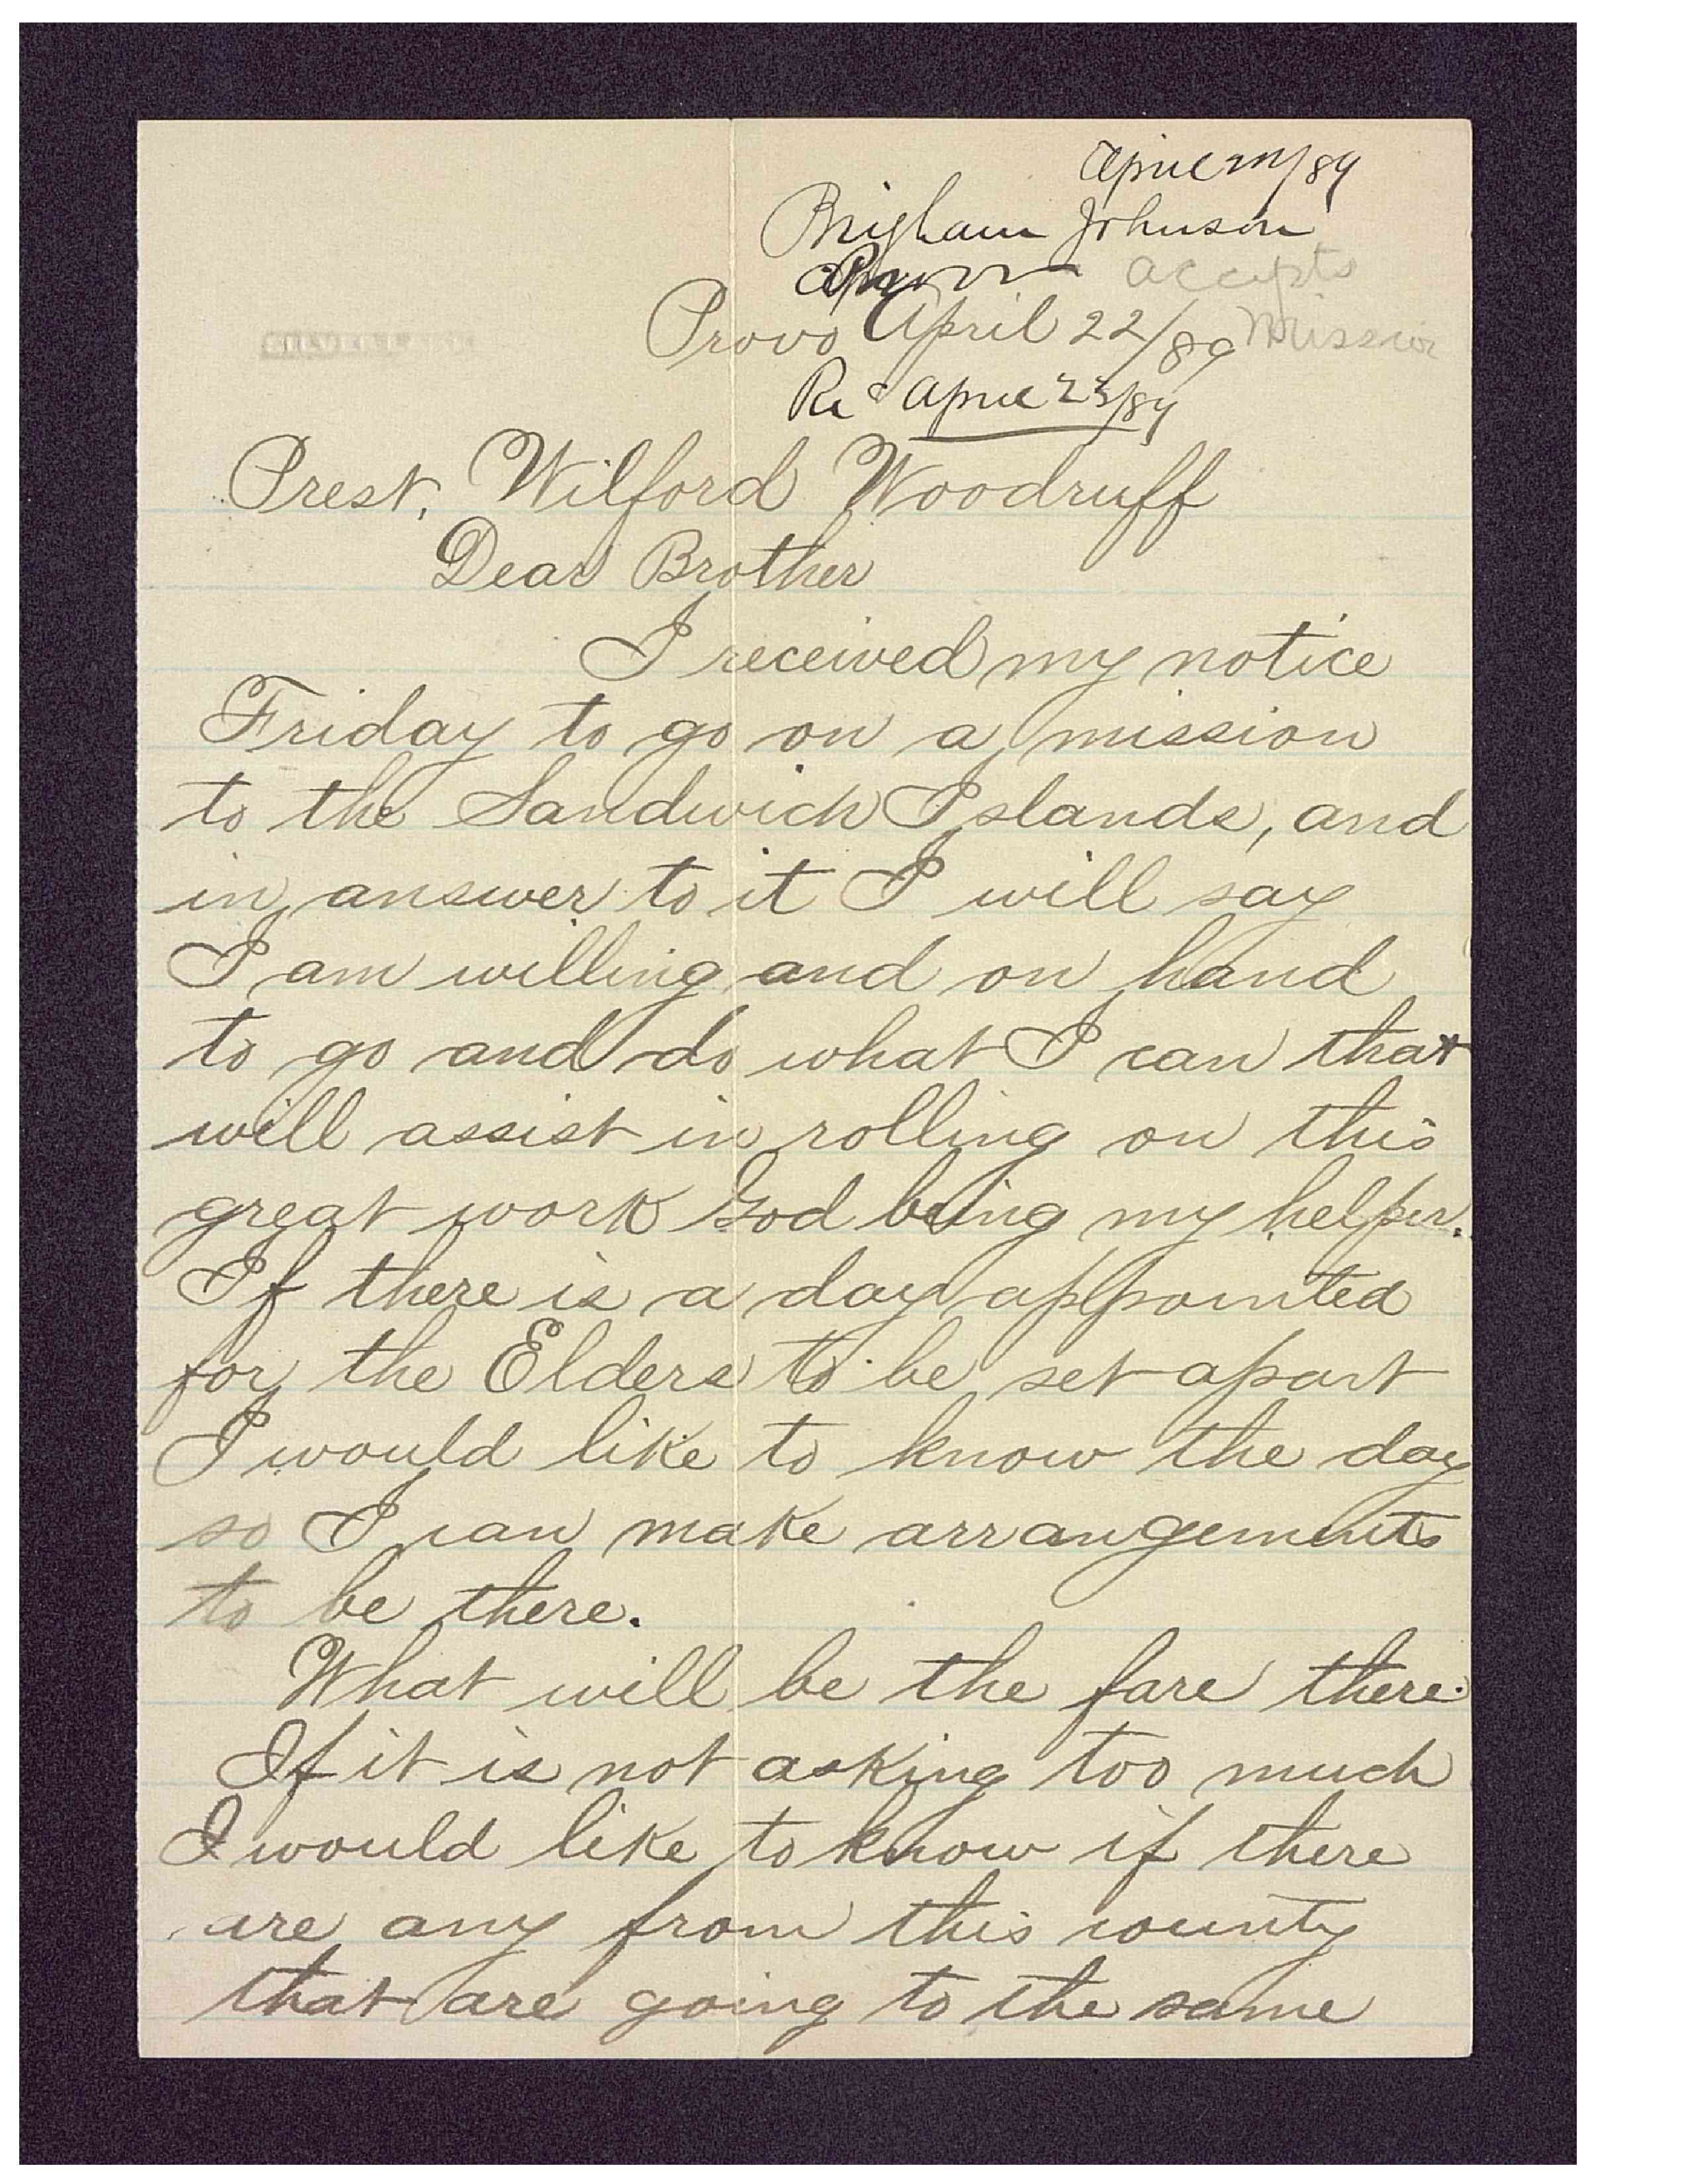 April 22/89
Brigham Johnson
Provo accepts
Provo April 22/89 Mission
Recd April 23/89
Prest. Wilford Woodruff
Dear Brother
I received my notice
Friday to go on a mission
to the Sandwich Islands, and
in answer to it I will say
I am willing and on hand
to go and do what I can that
will assist in rolling on this
great work God being my helper.
If there is a day appointed
for the Elders to be set apart
I would like to know the day
so I can make arrangements
to be there.
What will be the fare there.
If it is not asking too much
I would like to know if there
are any from this county
that are going to the same